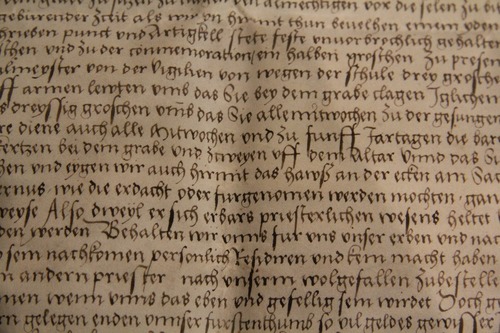 geburender Zeit als wir in hirmit thun bevelhen einem yden
hrieben punct und Artigkell stete feste unvorbrochlich gehalten
schen und zu der commemoration em halben groschen zu presen
almeyster von der vigilien von wegen der schule drey grosche
ff armen lewten vnnd das Sie bey dem grabe clagen Jglichen
s dreyssig groschen vnnd das Sie alle mitwochen zu der gesungen
re diene auch alle Mitwochen und zu funff Jartagen die bar
ertzen bei dem grabe und Zcweyen uff dem altar Vnnd das S
hen und eygen wir auch hirmit das hawss an der ecken am Sac
ernus wie die erdacht oder furgenomen werden mochten gan
weyse Also dweyl er sich erbars priesterlichen wesens heltet
den werden Behalten wir vnns fur vns unser erben und nac
o sem nachkomen personlich Residiren und kein macht haben
m andern priester nach unserm wolgefallen zubestelle
men wenn vnns das eben und gefellig sem wirdet Doch
rn gelegen enden vnnser furstenthumb so vil geldes gewisser